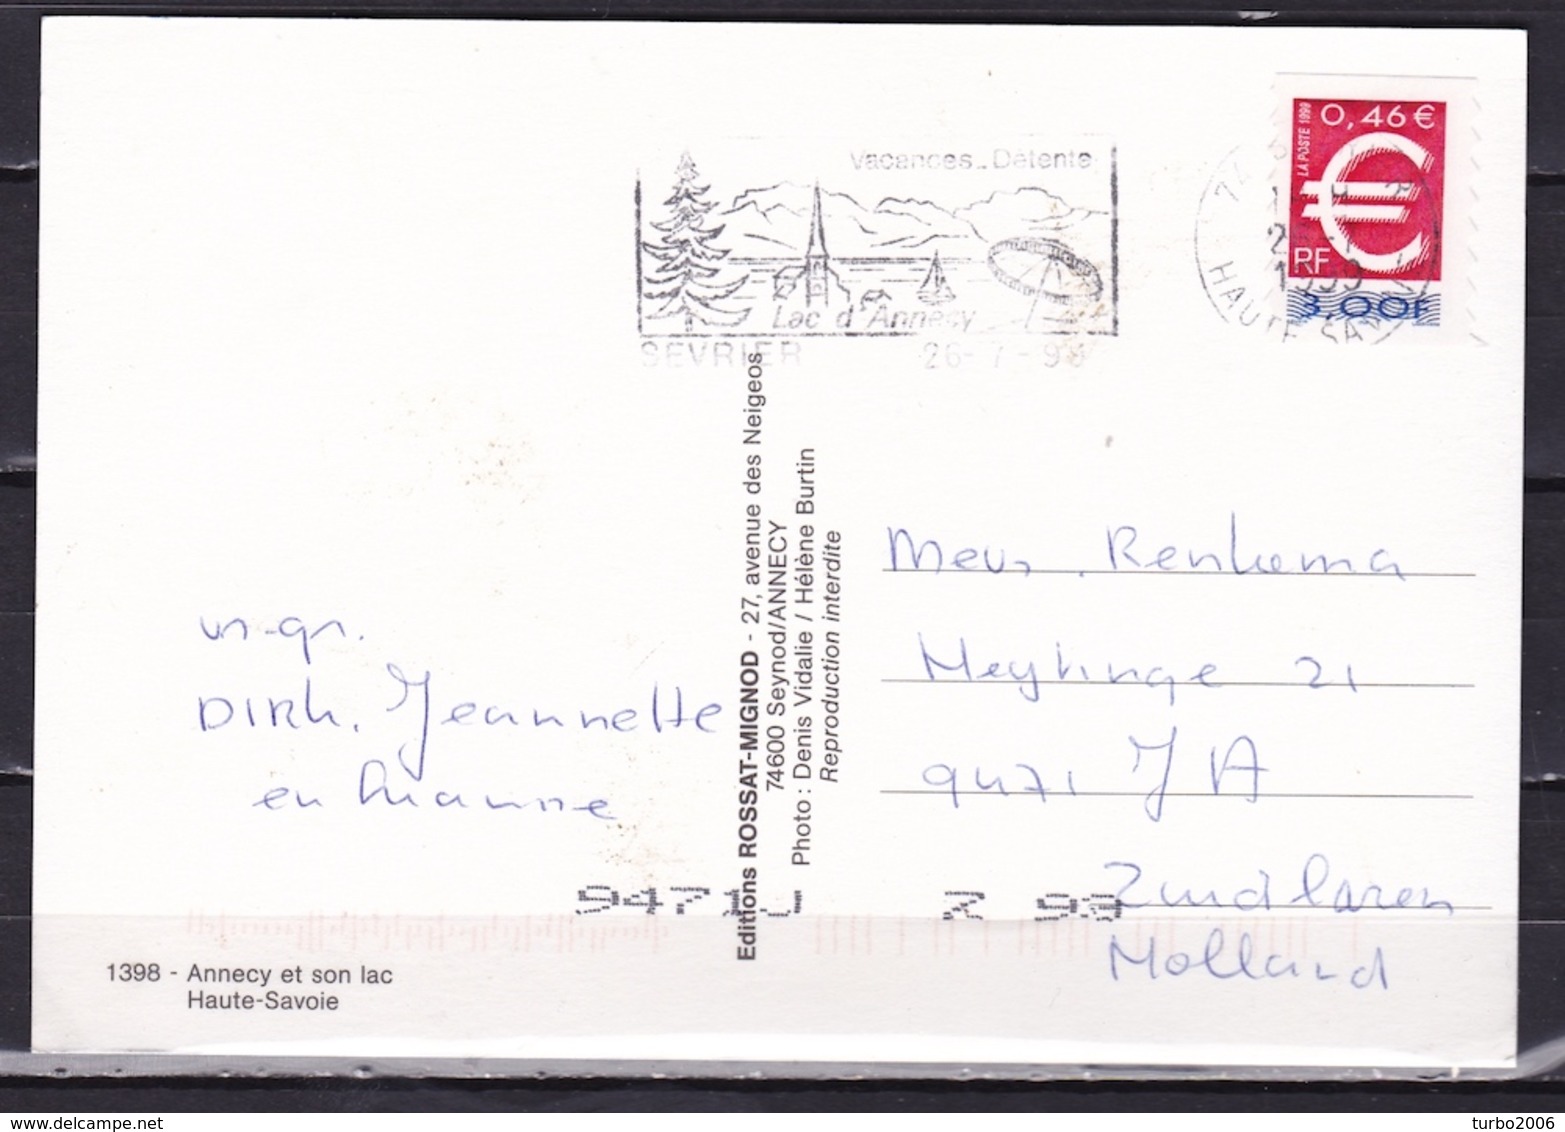 0,46€
LA POSTE 1999
RF
3,00F
HAUTE SAVOIE
Vacances - Détente
Lac d'Annecy
SEVRIER 26-7-99
Editions ROSSAT-MIGNOD - 27, avenue des Neigeos
74600 Seynod/ANNECY
Photo : Denis Vidalie / Hélène Burtin
Reproduction interdite
vr. gr.
Dirk, Jeannette
en
Renkema
21
9471 JA
Zuidlaren
Holland
9471
1398 - Annecy et son lac
Haute-Savoie
turbo2006